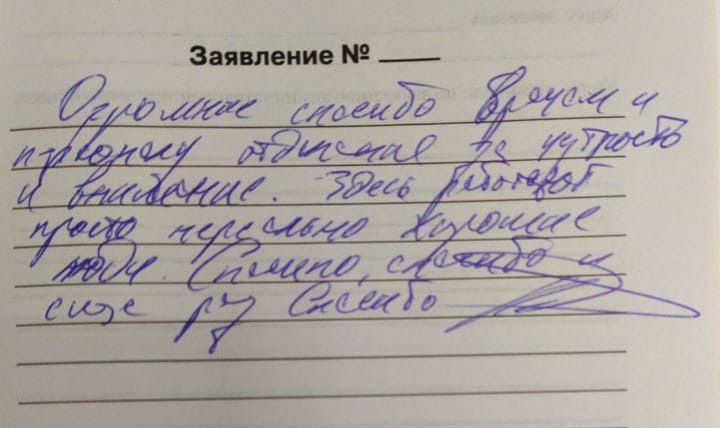 Заявление № ___
Огромное спасибо врачам и
персоналу отделения за чуткость
и внимание. Здесь работают
просто нереально хорошие
люди. Спасибо, спасибо и
еще раз Спасибо